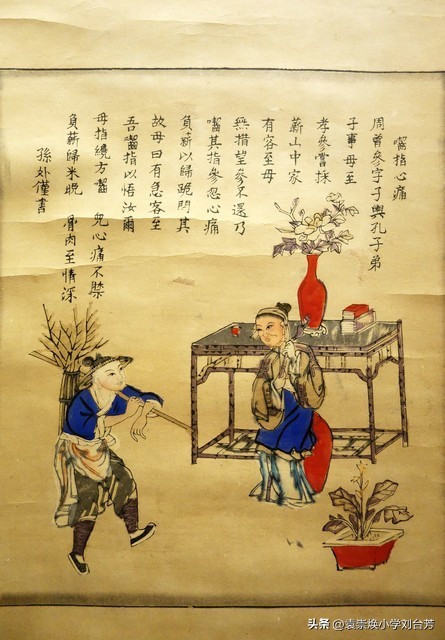 嚙指心痛
周曾參字子輿孔子弟
子事母至
孝參嘗採
薪山中家
有客至母
無措望參不還乃
嚙其指參忍心痛
負薪以歸跪問其
故母曰有急客至
吾嚙指以悟汝爾
母指繞方嚙 兒心痛不禁
負薪歸未晚 骨肉至情深
孫处僅書
头条 @袁崇焕小学刘台芳